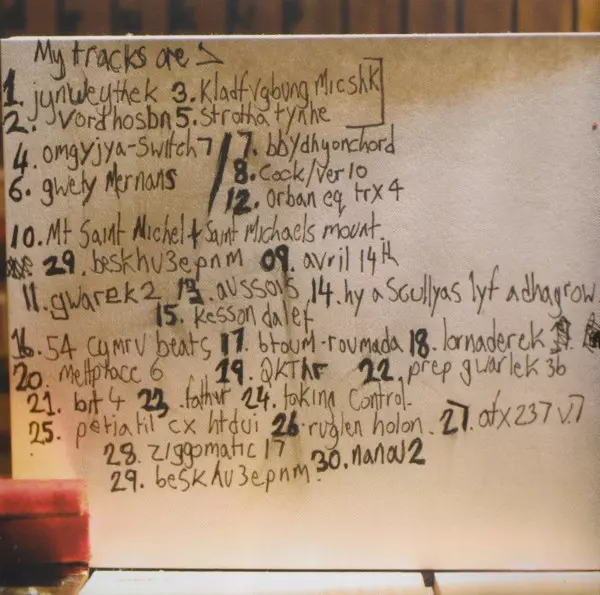 My tracks are >
1. jynweythek 3. Kladfvgbung Micshk
2. vordhosbn 5. Strotha tynhe
4. omgyjya-Switch7 / 7. bbydhyonchord
6. gwely Mernans 8. Cock/ver10
12. orban eq trx 4
10. Mt Saint Michel + Saint Michaels mount.
29. beskhu3epnm 09. avril 14th
11. gwarek2 13. aussois 14. hy a Scullyas lyf adhagrow
15. kesson dalef
16. 54 cymru beats 17. btoum-roumada 18. lornaderek
20. meltphace 6 19. QKThr 22. prep gwarlek 3b
21. bit 4 23. father 24. taking Control.
25. petiatil cx htdui 26. ruglen holon. 27. afx237 v.7
28. ziggomatic 17 30. nanou2
29. beskhu3epnm.